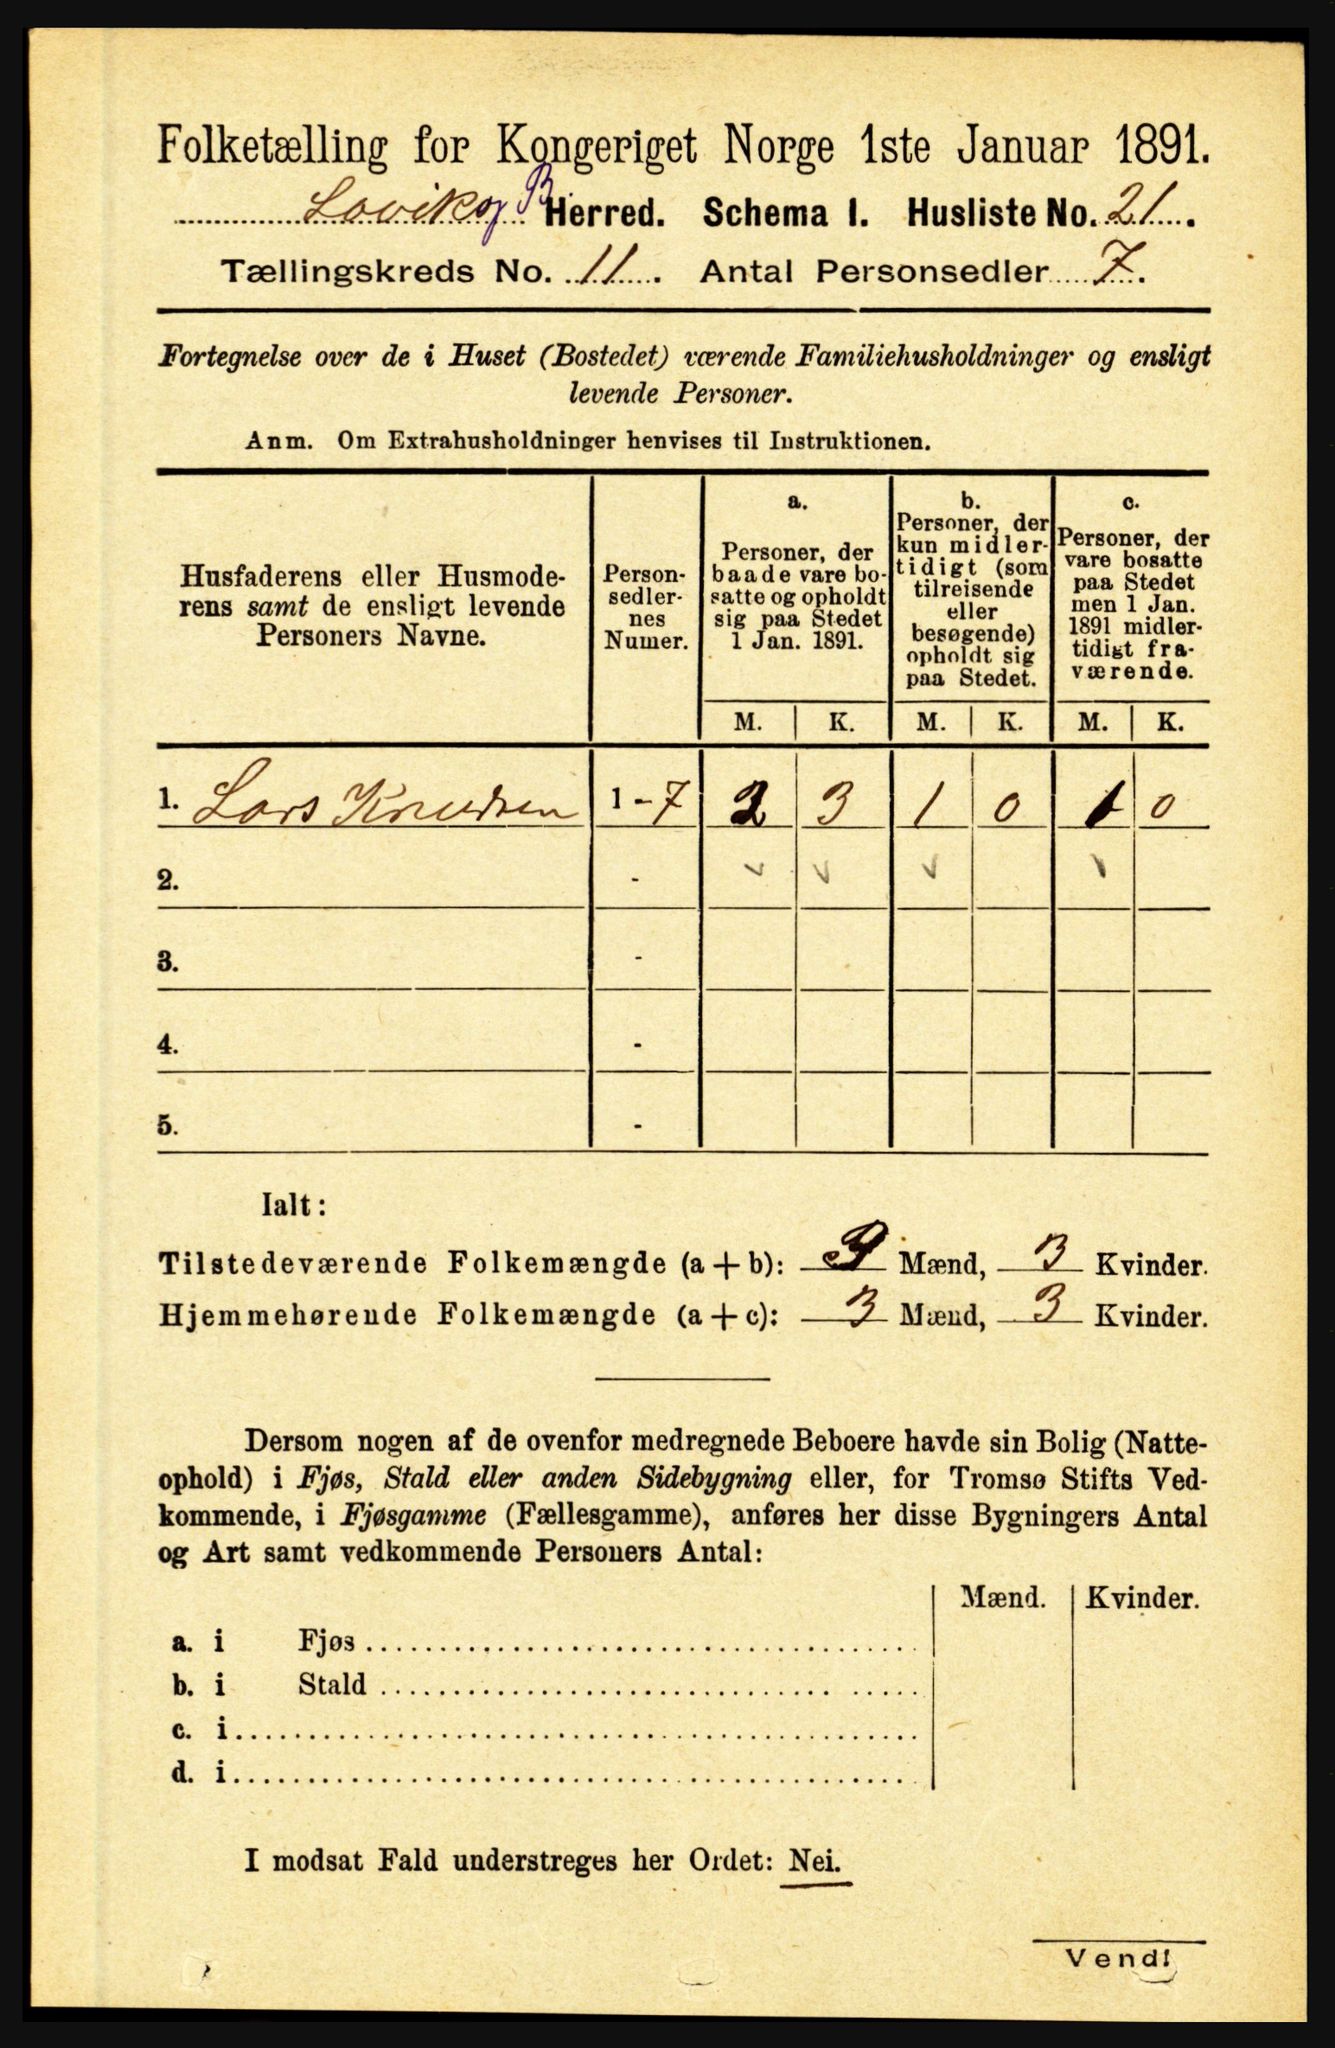 Folketælling for Kongeriget Norge 1ste Januar 1891.
Lavik og B. Herred. Schema I. Husliste No. 21.
Tællingskreds No. 11. Antal Personsedler 7.
Fortegnelse over de i Huset (Bostedet) værende Familiehusholdninger og ensligt
levende Personer.
Anm. Om Extrahusholdninger henvises til Instruktionen.
Husfaderens eller Husmode-
rens samt de ensligt levende
Personers Navne.
Person-
sedler-
nes
Numer.
a.
Personer, der
baade vare bo-
satte og opholdt
sig paa Stedet
1 Jan. 1891.
b.
Personer, der
kun midler-
tidigt (som
tilreisende
eller
besøgende)
opholdt sig
paa Stedet.
c.
Personer, der
vare bosatte
paa Stedet
men 1 Jan.
1891 midler-
tidigt fra-
værende.
M. K. M. K. M. K.
1. Lars Knudsen 1 - 7 2 3 1 0 1 0
2. -
3. -
4. -
5. -
Ialt:
Tilstedeværende Folkemængde (a + b): 3 Mænd, 3 Kvinder.
Hjemmehørende Folkemængde (a + c): 3 Mænd, 3 Kvinder.
Dersom nogen af de ovenfor medregnede Beboere havde sin Bolig (Natte-
ophold) i Fjøs, Stald eller anden Sidebygning eller, for Tromsø Stifts Ved-
kommende, i Fjøsgamme (Fællesgamme), anføres her disse Bygningers Antal
og Art samt vedkommende Personers Antal:
Mænd. Kvinder.
a. i Fjøs
b. i Stald
c. i
d. i
I modsat Fald understreges her Ordet: Nei.
Vend!